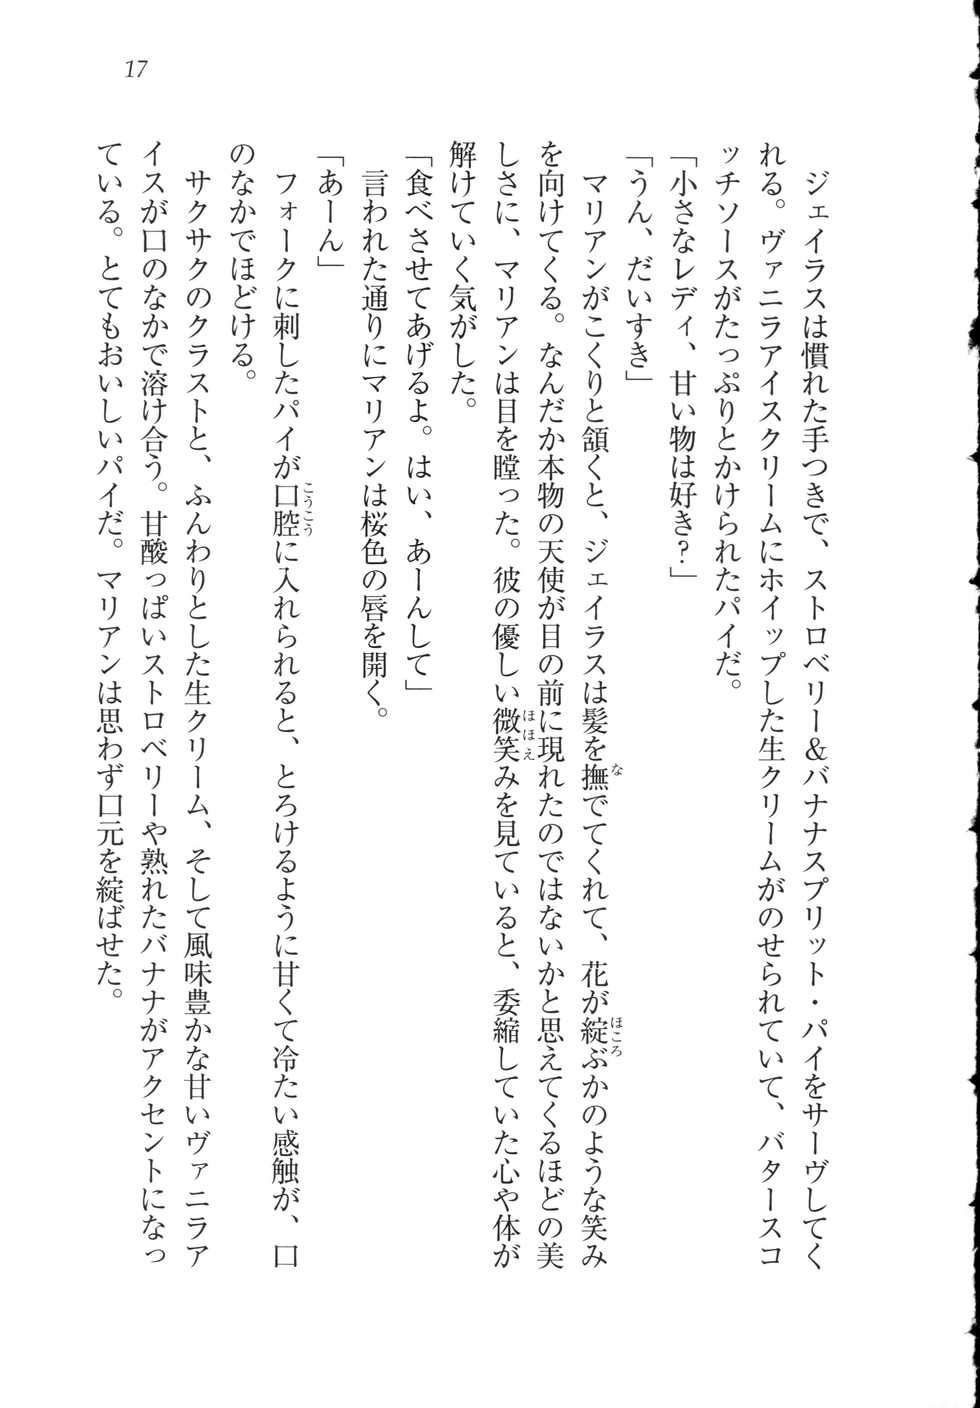 17
ジェイラスは慣れた手つきで、ストロベリー＆バナナスプリット・パイをサーヴしてく
れる。ヴァニラアイスクリームにホイップした生クリームがのせられていて、バタースコ
ッチソースがたっぷりとかけられたパイだ。
「小さなレディ、甘い物は好き？」
「うん、だいすき」
マリアンがこくりと頷くと、ジェイラスは髪を撫でてくれて、花が綻ぶかのような笑み
を向けてくる。なんだか本物の天使が目の前に現れたのではないかと思えてくるほどの美
しさに、マリアンは目を瞠った。彼の優しい微笑みを見ていると、委縮していた心や体が
解けていく気がした。
「食べさせてあげるよ。はい、あーんして」
言われた通りにマリアンは桜色の唇を開く。
「あーん」
フォークに刺したパイが口腔に入れられると、とろけるように甘くて冷たい感触が、口
のなかでほどける。
サクサクのクラストと、ふんわりとした生クリーム、そして風味豊かな甘いヴァニラア
イスが口のなかで溶け合う。甘酸っぱいストロベリーや熟れたバナナがアクセントになっ
ている。とてもおいしいパイだ。マリアンは思わず口元を綻ばせた。